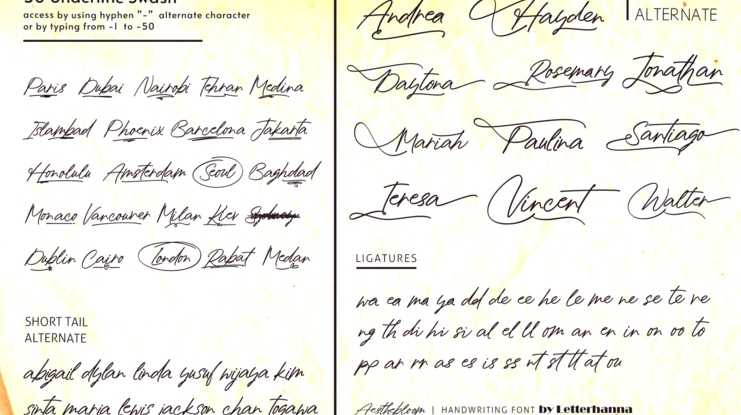 50 Underline Swash
access by using hyphen "-" alternate character
or by typing from -1 to -50
Paris Dubai Nairobi Tehran Medina
Islambad Phoenix Barcelona Jakarta
Honolulu Amsterdam Seoul Baghdad
Monaco Vancouver Milan Kiev Sydney
Dublin Cairo London Rabat Medan
SHORT TAIL
ALTERNATE
abigail dylan linda yusuf wijaya kim
sinta maria lewis jackson chan togawa
Andrea Hayden
ALTERNATE
Daytona Rosemary Jonathan
Mariah Paulina Santiago
Teresa Vincent Walter
LIGATURES
wa ea ma ya dd de ee he le me ne se te re
ng th di hi si al el ll om an en in on oo to
pp ar rr as es is ss nt st tt at ou
Aesthebloom | HANDWRITING FONT by Letterhanna